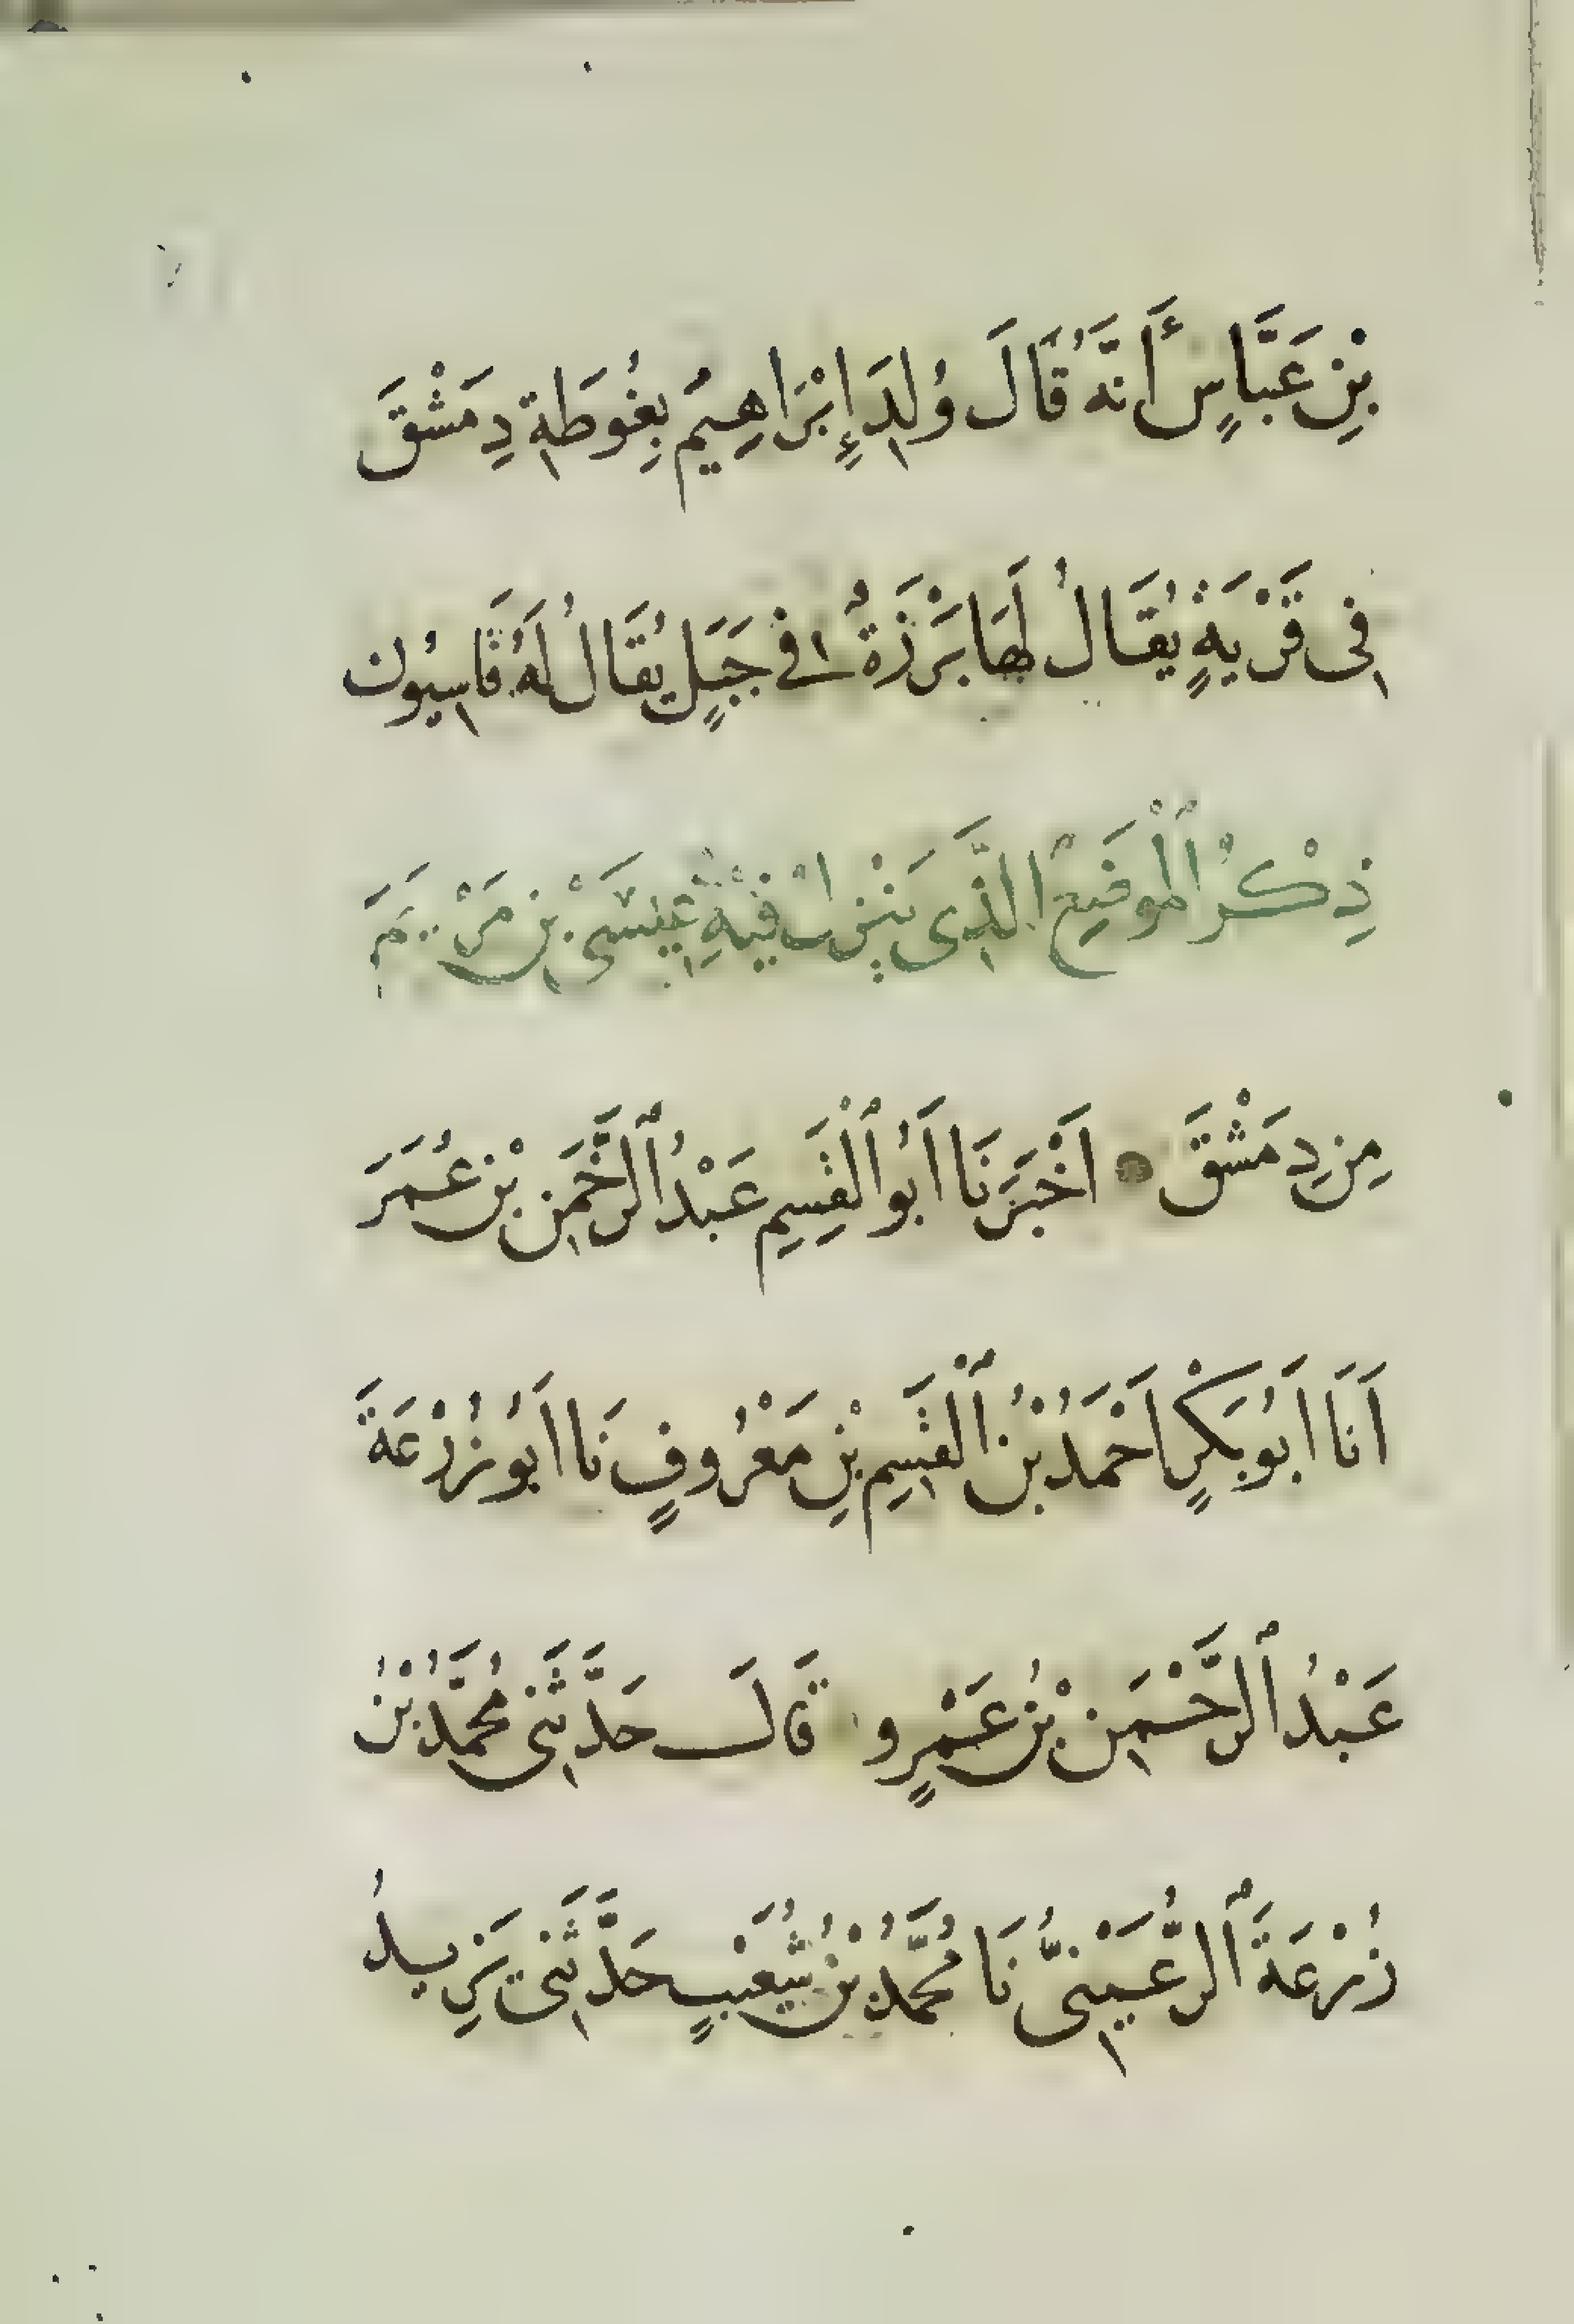 بْنِ عَبَّاسٍ أَنَّهُ قَالَ وُلِدَ إِبْرَاهِيمُ بِغُوطَةِ دِمَشْقَ
فِى قَرْيَةٍ يُقَالُ لَهَا بَرْزَةُ فِى جَبَلٍ يُقَالُ لَهُ قَاسِيُون
ذِكْرُ ٱلْمَوضِعِ الَّذِى يَنْزِلُ فِيْهِ عِيْسَى بْنِ مَرْيَمَ
مِن دِمَشْقَ اَخْبَرَنَا اَبُو ٱلْقَسِمِ عَبْدُ ٱلرَّحْمَنِ بْنِ عُمَرَ
اَنَا اَبُو بَكْرٍ اَحْمَدُ بْنُ ٱلْقَسِمِ بْنِ مَعْرُوفٍ نَا اَبُو زُرْعَةَ
عَبْدُ ٱلرَّحْمَنِ بْنُ عَمْرٍو قَالَ حَدَّثَنِى مُحَمَّدُ بْنُ
زُرْعَةَ ٱلرُّعَيْنِىُّ نَا مُحَمَّدُ بْنُ شُعَيْبٍ حَدَّثَنِى يَزِيدُ